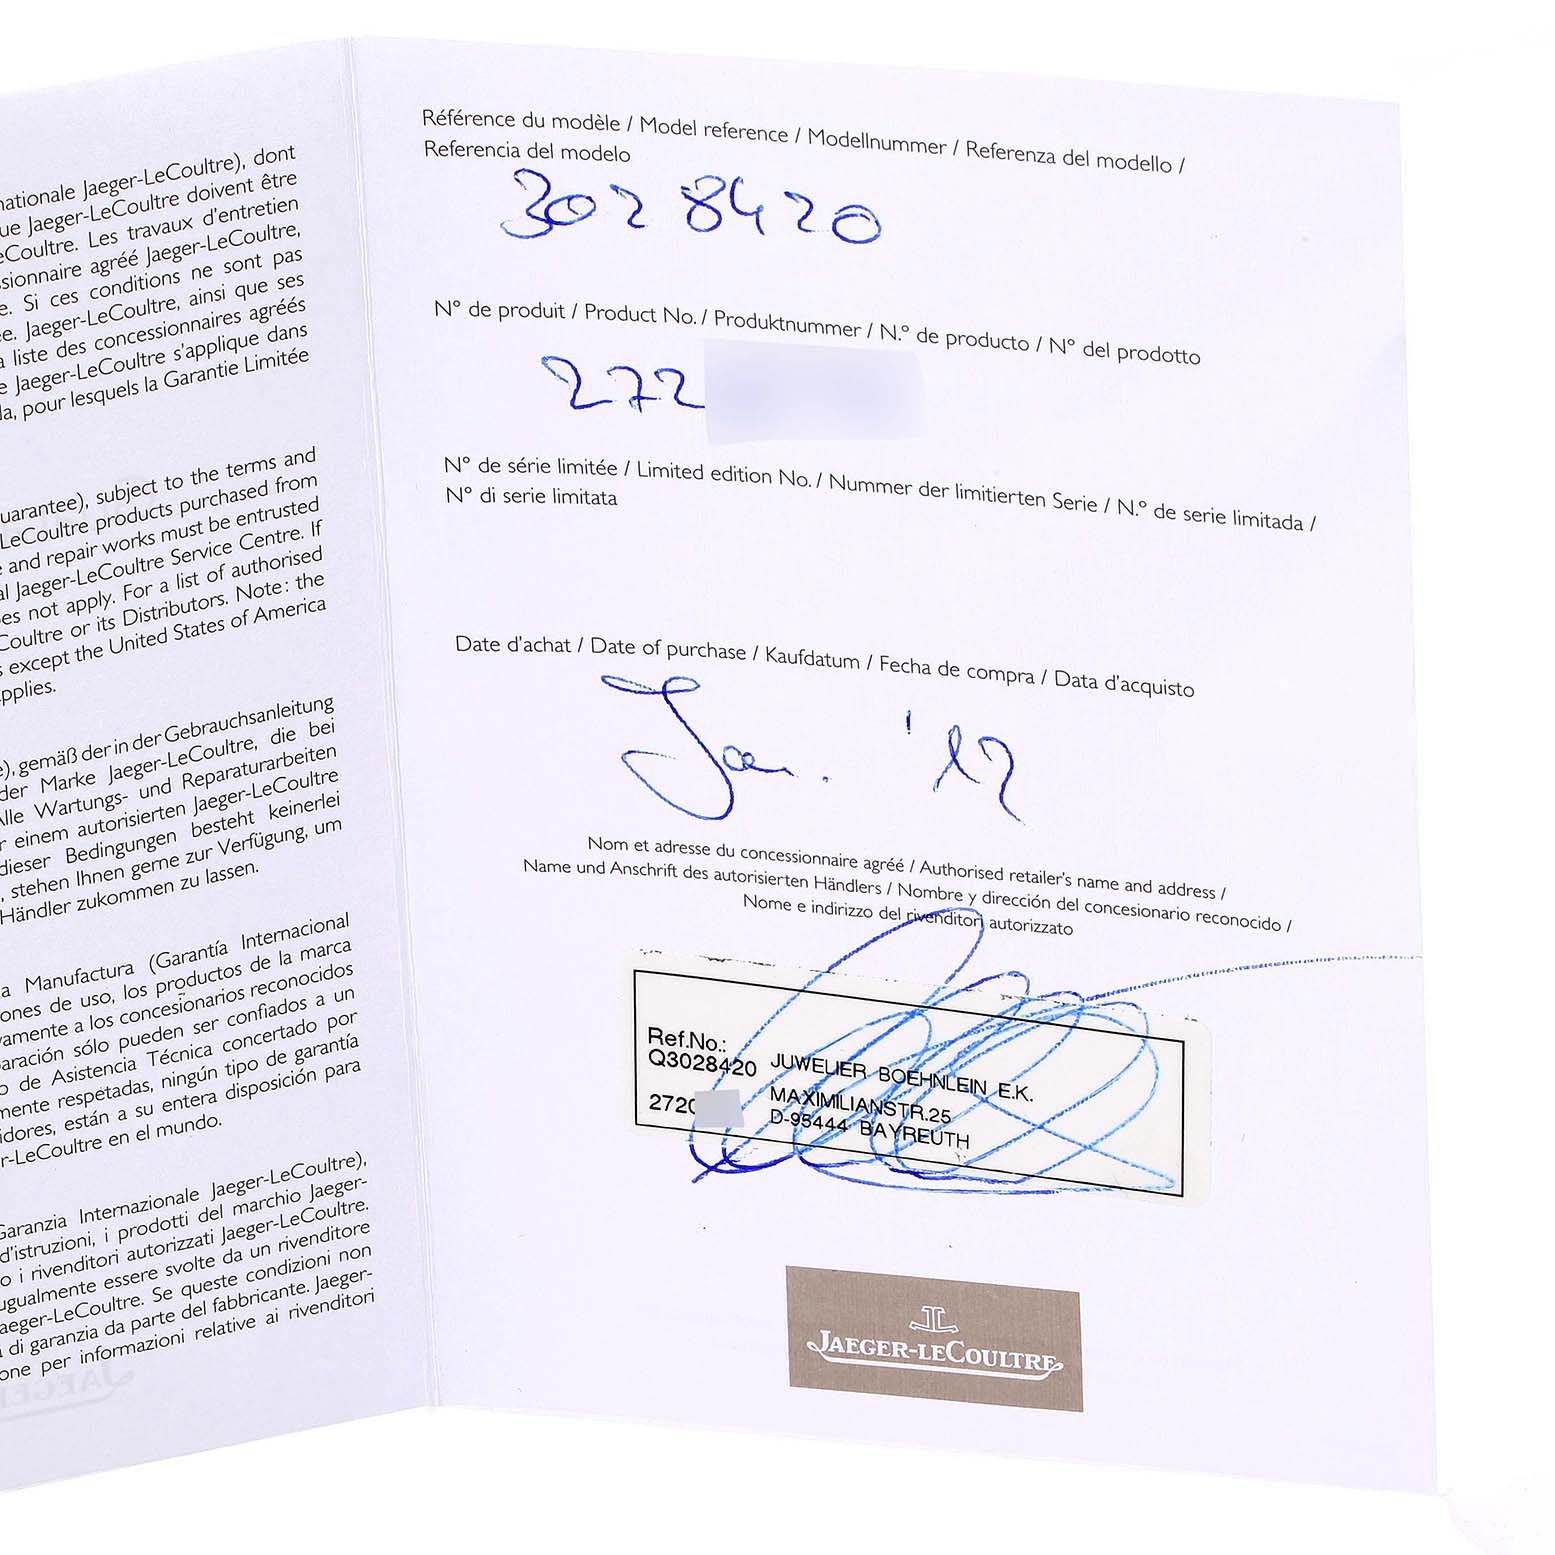 nationale Jaeger-LeCoultre), dont
que Jaeger-LeCoultre doivent être
LeCoultre. Les travaux d'entretien
ssionnaire agréé Jaeger-LeCoultre,
e. Si ces conditions ne sont pas
ée. Jaeger-LeCoultre, ainsi que ses
a liste des concessionnaires agréés
e Jaeger-LeCoultre s'applique dans
la, pour lesquels la Garantie Limitée
uarantee), subject to the terms and
LeCoultre products purchased from
e and repair works must be entrusted
al Jaeger-LeCoultre Service Centre. If
es not apply. For a list of authorised
Coultre or its Distributors. Note: the
s except the United States of America
applies.
e), gemäß der in der Gebrauchsanleitung
der Marke Jaeger-LeCoultre, die bei
Alle Wartungs- und Reparaturarbeiten
r einem autorisierten Jaeger-LeCoultre
dieser Bedingungen besteht keinerlei
, stehen Ihnen gerne zur Verfügung, um
Händler zukommen zu lassen.
a Manufactura (Garantía Internacional
ones de uso, los productos de la marca
vamente a los concesionarios reconocidos
paración sólo pueden ser confiados a un
o de Asistencia Técnica concertado por
mente respetadas, ningún tipo de garantía
idores, están a su entera disposición para
r-LeCoultre en el mundo.
Garanzia Internazionale Jaeger-LeCoultre),
d'istruzioni, i prodotti del marchio Jaeger-
o i rivenditori autorizzati Jaeger-LeCoultre.
ugualmente essere svolte da un rivenditore
Jaeger-LeCoultre. Se queste condizioni non
a di garanzia da parte del fabbricante. Jaeger-
one per informazioni relative ai rivenditori
Référence du modèle / Model reference / Modellnummer / Referenza del modello /
Referencia del modelo
3028420
N° de produit / Product No. / Produktnummer / N.° de producto / N° del prodotto
272
N° de série limitée / Limited edition No. / Nummer der limitierten Serie / N.° de serie limitada /
N° di serie limitata
Date d'achat / Date of purchase / Kaufdatum / Fecha de compra / Data d'acquisto
Jan. '12
Nom et adresse du concessionnaire agréé / Authorised retailer's name and address /
Name und Anschrift des autorisierten Händlers / Nombre y dirección del concesionario reconocido /
Nome e indirizzo del rivenditori autorizzato
Ref.No.:
Q3028420 JUWELIER BOEHNLEIN E.K.
2720 MAXIMILIANSTR.25
D-95444 BAYREUTH
JAEGER-LECOULTRE